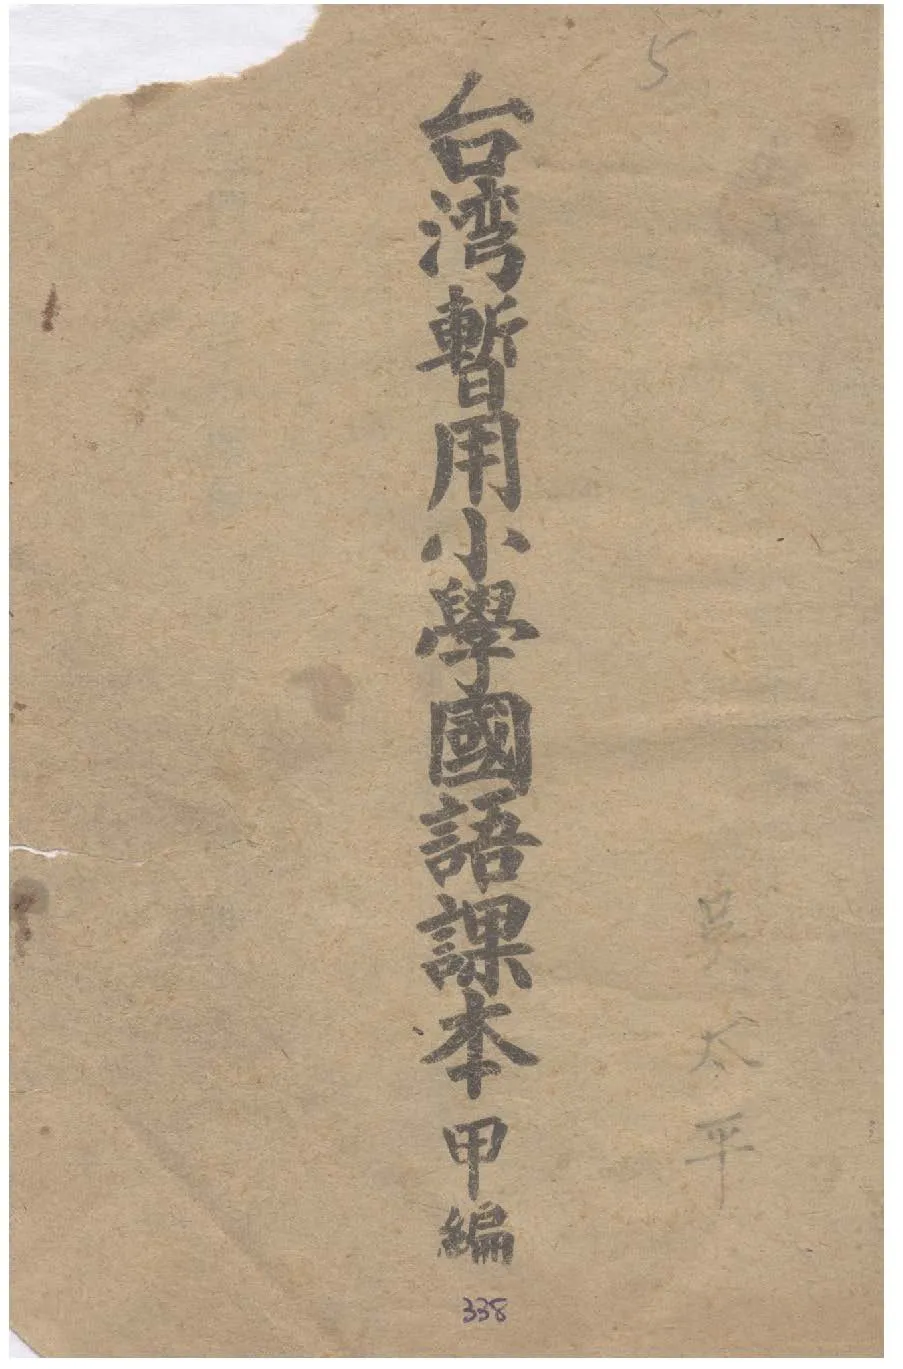 5
台湾暫用小學國語課本 甲編
吴太平
338